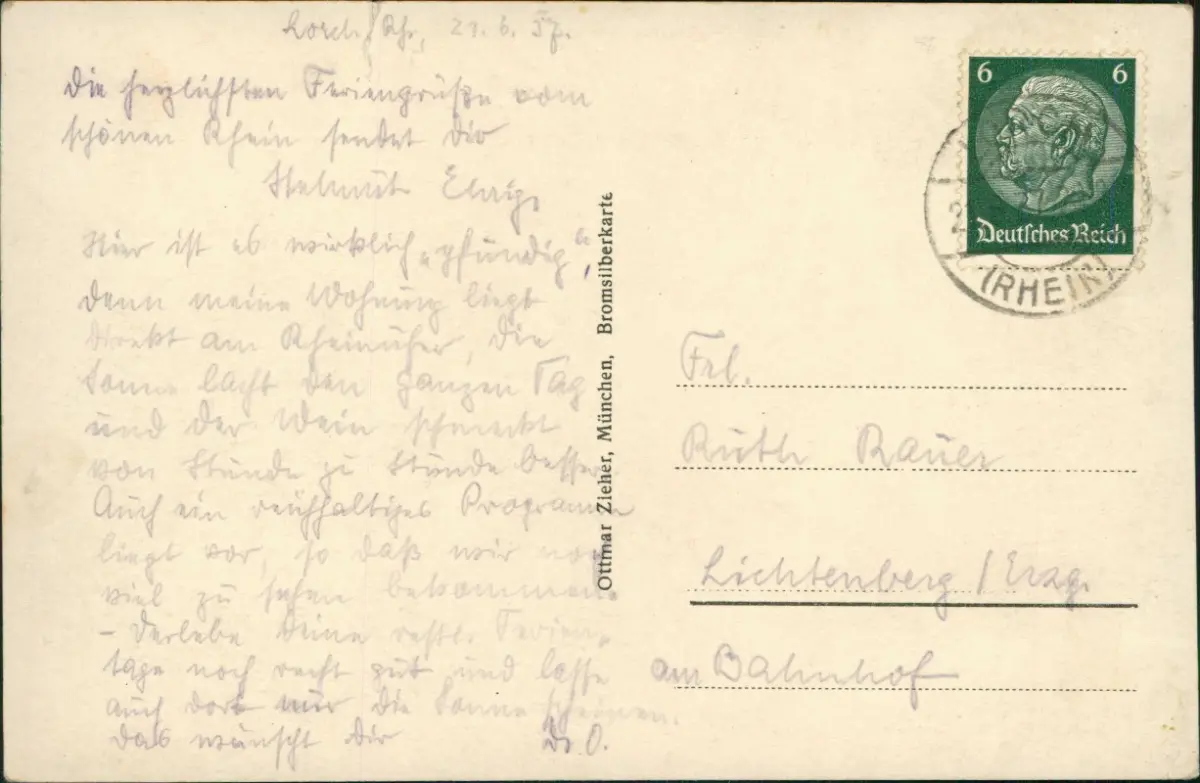 Lorch/Rh., 21.6.37.
Die herzlichsten Feriengrüße vom
schönen Rhein sendet Dir
Helmut
Hier ist es wirklich „pfundig“,
denn meine Wohnung liegt
direkt am Rheinufer, die
Sonne lacht den ganzen Tag
und der Wein schmeckt
von Stunde zu Stunde besser.
Auch ein reichhaltiges Programm
liegt vor, so daß wir noch
viel zu sehen bekommen.
- Verlebe Deine restl. Ferien-
tage noch recht gut und lasse
auch dort nur die Sonne scheinen.
Das wünscht Dir
D. O.
Ottmar Zieher, München, Bromsilberkarte
6 6
Deutsches Reich
(RHEIN)
Frl.
Ruth Rauer
Lichtenberg / Erzg.
am Bahnhof